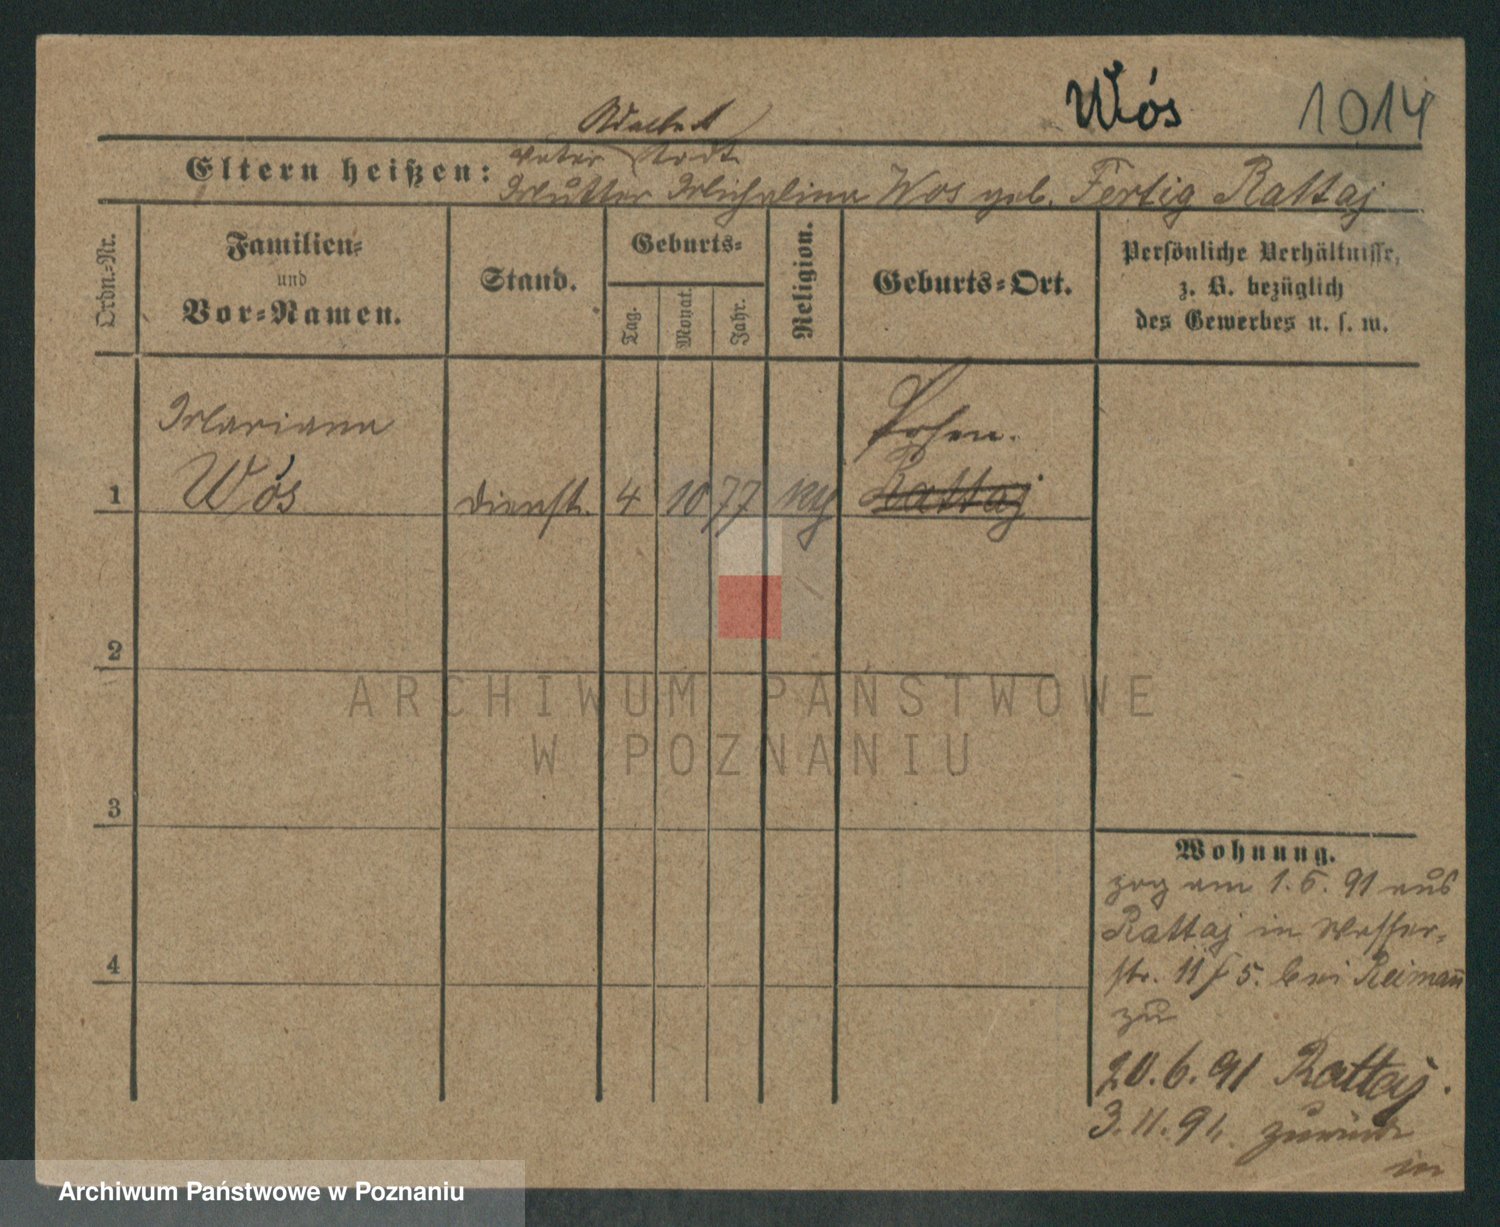 Wós 1014
Adalbert
Vater todt
Eltern heißen: Mutter Michalina Wos geb. Fertig Rattaj
Ordn.-Nr.
Familien-
und
Vor-Namen.
Stand.
Geburts-
Tag.
Monat.
Jahr.
Religion.
Geburts-Ort.
Persönliche Verhältnisse,
z. B. bezüglich
des Gewerbes u. s. w.
Marianna
Posen.
1 Wós Dienstb. 4 10 77 Rattaj
2
3
4
Wohnung.
zog am 1. 5. 91 aus
Rattaj in Wasser-
str. 11/5. bei Reimann
zu
20. 6. 91 Rattaj.
3. 11. 91. zurück
in
ARCHIWUM PAŃSTWOWE
W POZNANIU
Archiwum Państwowe w Poznaniu